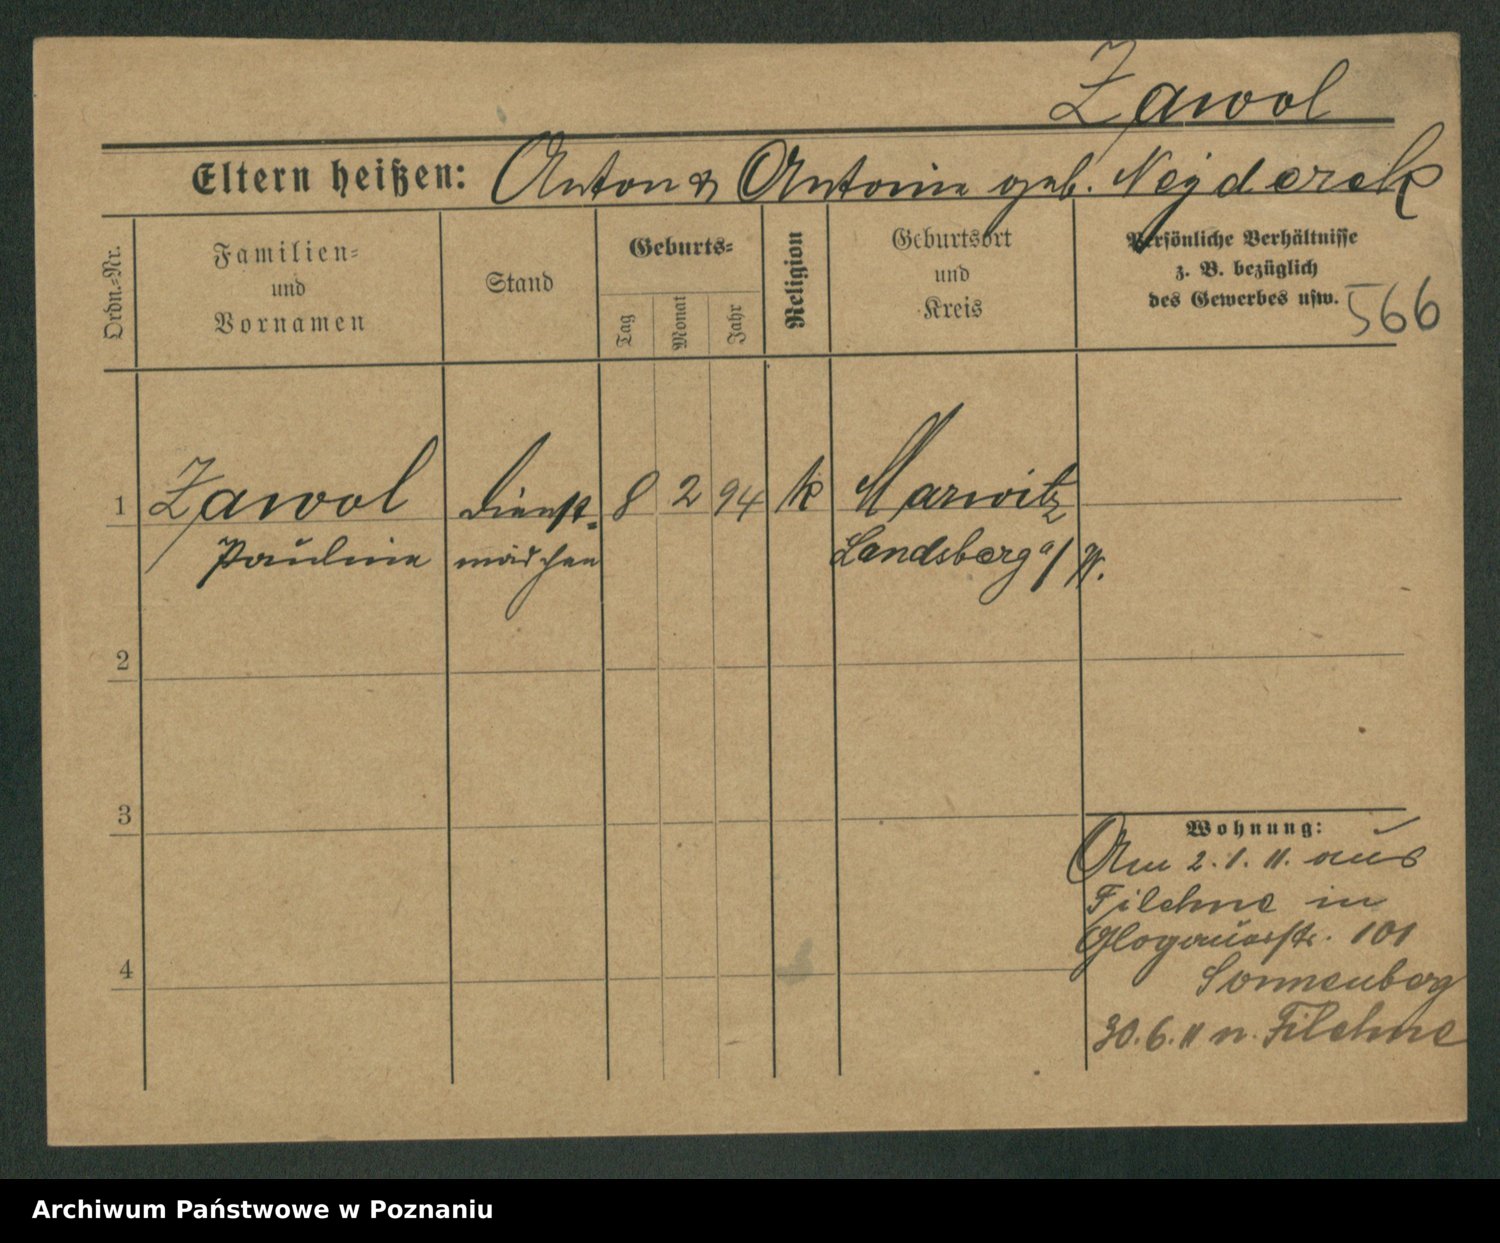 Zawol
Eltern heißen: Anton & Antonie geb. Nejderek
Ordn.-Nr.
Familien-
und
Vornamen
Stand
Geburts-
Tag
Monat
Jahr
Religion
Geburtsort
und
Kreis
Persönliche Verhältnisse
z. B. bezüglich
des Gewerbes usw.
566
1 Zawol Dienst- 8 2 94 k Marwitz
Pauline mädchen Landsberg a/W.
2
3
Wohnung:
Am 2.1.11. aus
Filehne in
Glogauerstr. 101
4
Sonnenberg
30.6.11 n. Filehne
Archiwum Państwowe w Poznaniu